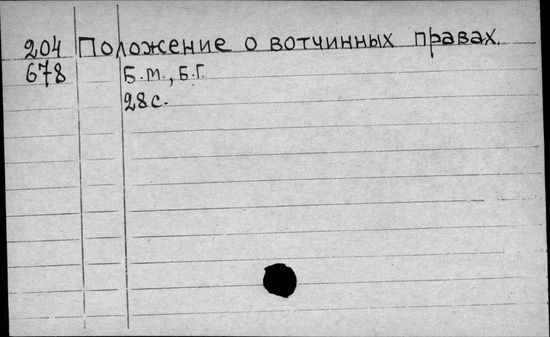 204 Положение о вотчинных правах.
678 Б.м., Б.г.
28 с.